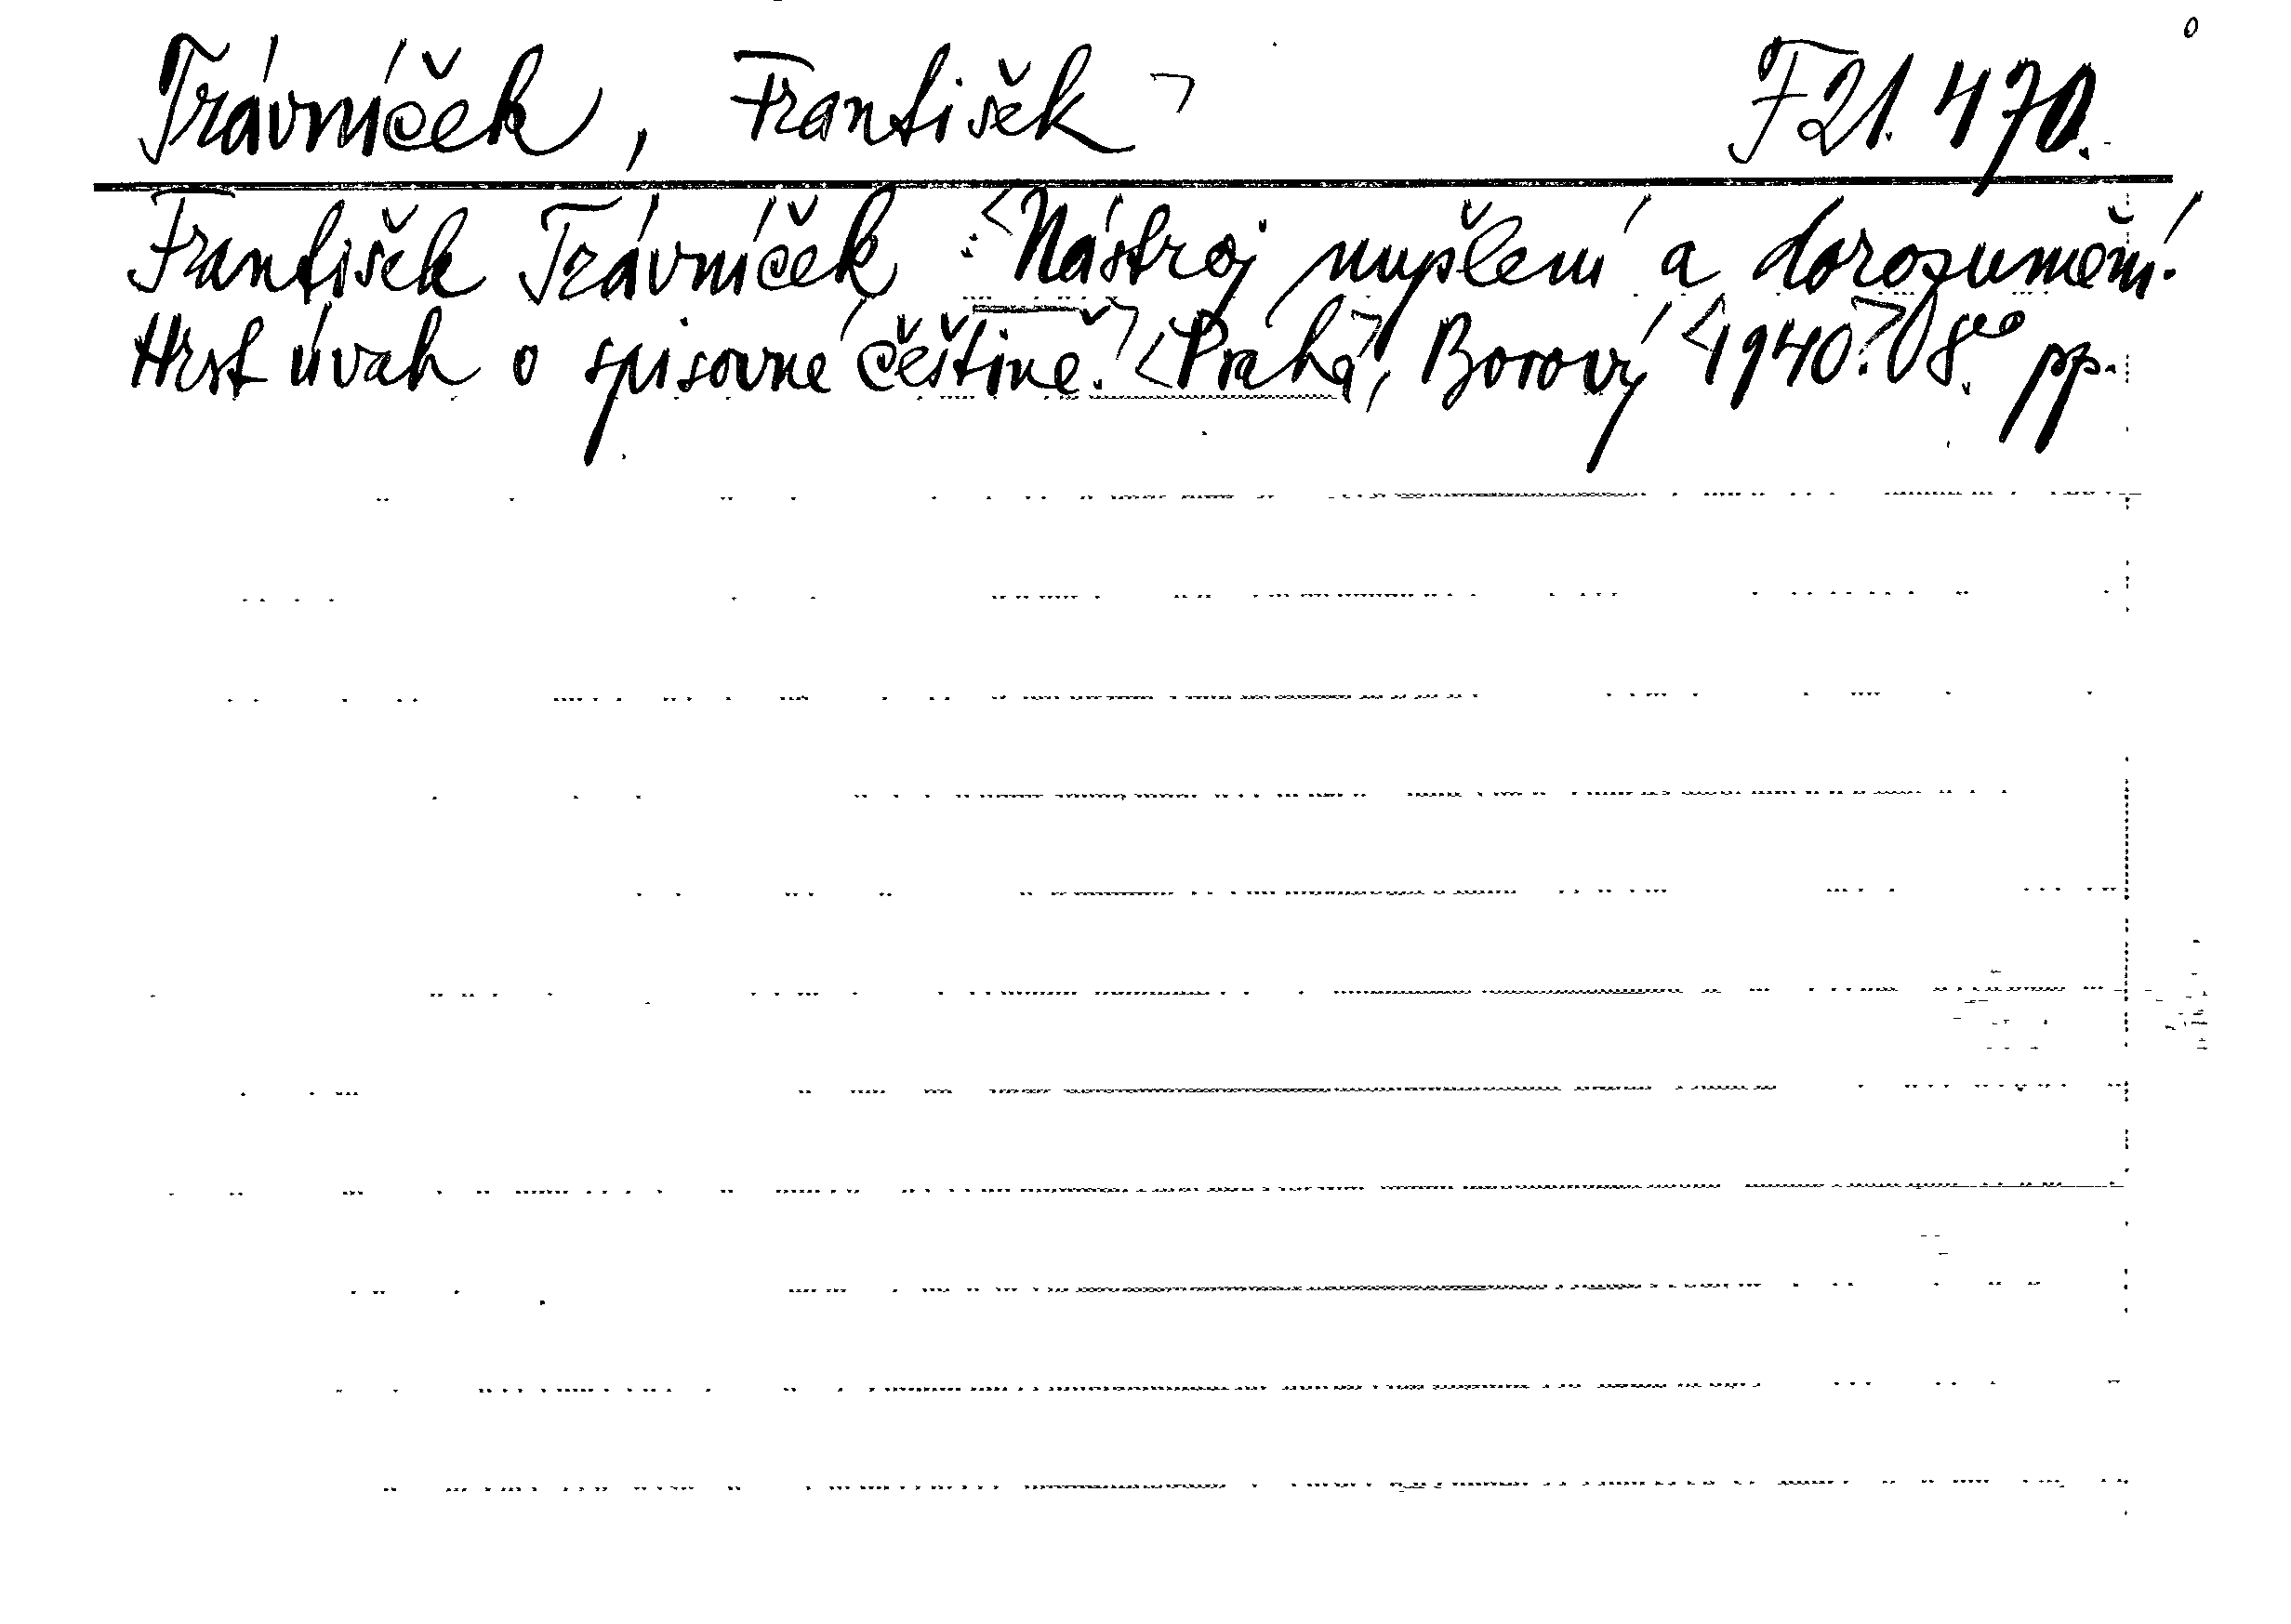 Trávníček, František ¬ F 21.470.
František Trávníček: <Nástroj myšlení a dorozumění.
Hrst úvah o spisovné češtině.¬ <Praha¬, Borový <1940.¬ 8.° pp.